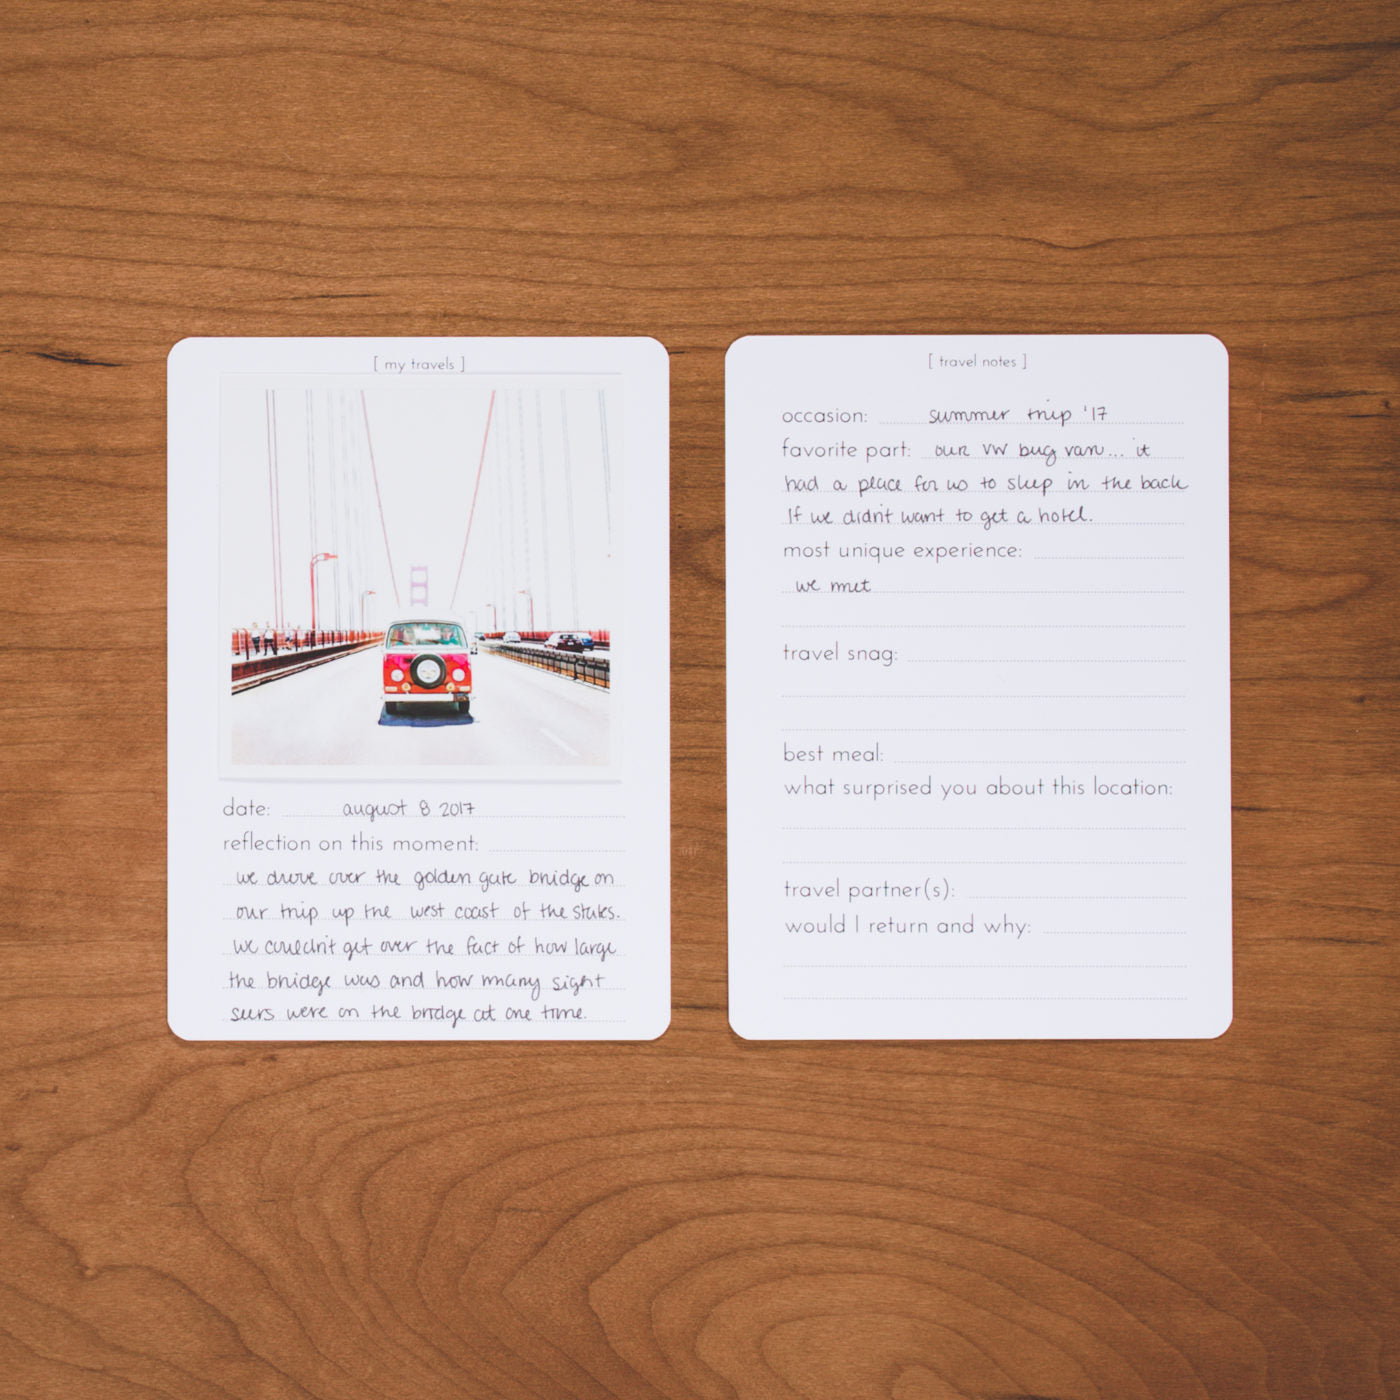 [ my travels ]
date: august 8 2017
reflection on this moment:
we drove over the golden gate bridge on
our trip up the west coast of the states.
we couldn't get over the fact of how large
the bridge was and how many sight
seers were on the bridge at one time.
[ travel notes ]
occasion: summer trip '17
favorite part: our VW bug van... it
had a place for us to sleep in the back
If we didn't want to get a hotel.
most unique experience:
we met
travel snag:
best meal:
what surprised you about this location:
travel partner(s):
would I return and why: